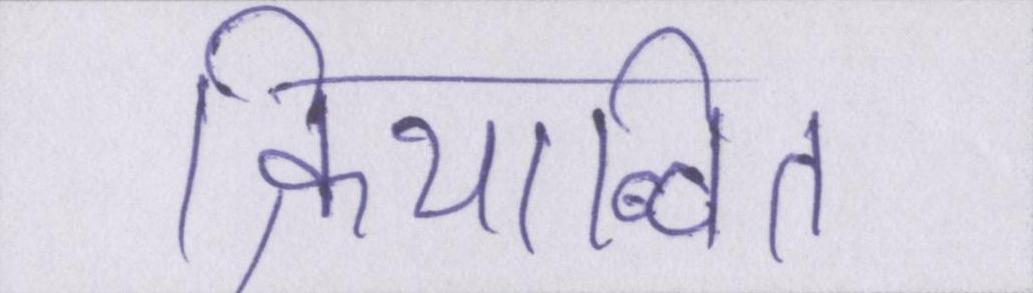 क्रियान्वित